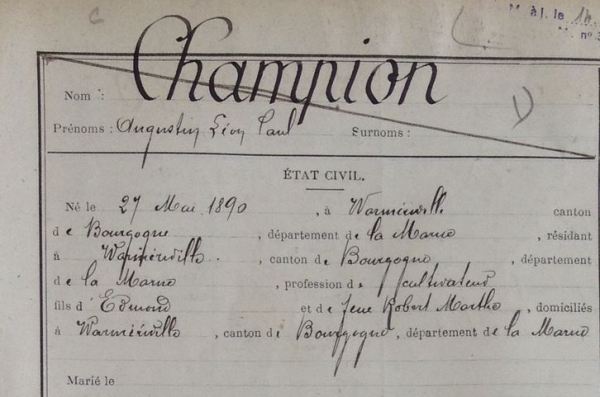 C
M. à l. le
M. nº
Nom : Champion
D
Prénoms : Augustin Léon Paul Surnoms :
ÉTAT CIVIL.
Né le 27 Mai 1890, à Warmériville canton
de Bourgogne, département de la Marne, résidant
à Warmériville, canton de Bourgogne, département
de la Marne, profession de cultivateur
fils d'Edmond et de feue Robert Marthe, domiciliés
à Warmériville, canton de Bourgogne, département de la Marne
Marié le